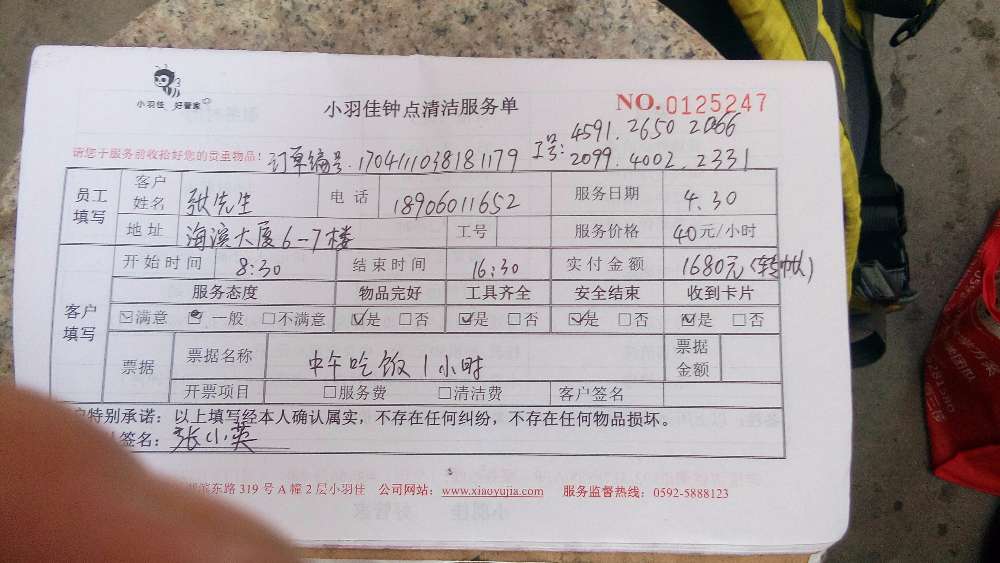 小羽佳 好管家
小羽佳钟点清洁服务单
NO.0125247
请您于服务前收拾好您的贵重物品!
订单编号.1704111038181179
工号: 4591. 2650 2066
2099. 4002. 2331
员工填写 客户姓名 张先生 电话 18906011652 服务日期 4.30
地址 海滨大厦6-7楼 工号 服务价格 40元/小时
客户填写 开始时间 8:30 结束时间 16:30 实付金额 1680元(转帐)
服务态度 物品完好 工具齐全 安全结束 收到卡片
☑满意 一般 □不满意 ☑是 □否 ☑是 □否 ☑是 □否 ☑是 □否
票据 票据名称 中午吃饭1小时 票据金额
开票项目 □服务费 □清洁费 客户签名
特别承诺:以上填写经本人确认属实,不存在任何纠纷,不存在任何物品损坏。
签名: 张小英
滨东路319号A幢2层小羽佳 公司网站:www.xiaoyujia.com 服务监督热线:0592-5888123